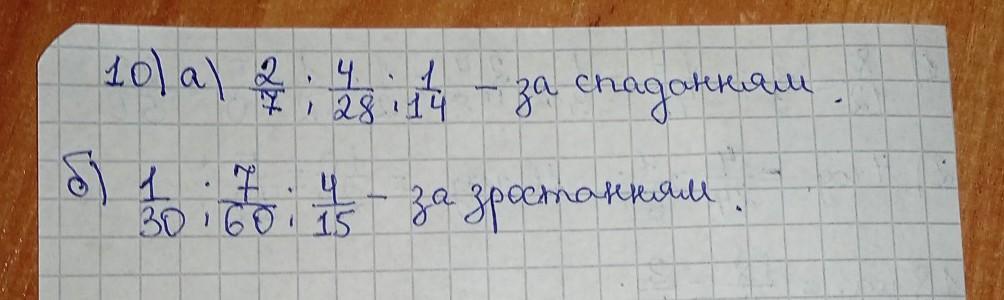 10) а) 2/7 ; 4/28 ; 1/14 – за спаданням.
б) 1/30 ; 7/60 ; 4/15 – за зростанням.